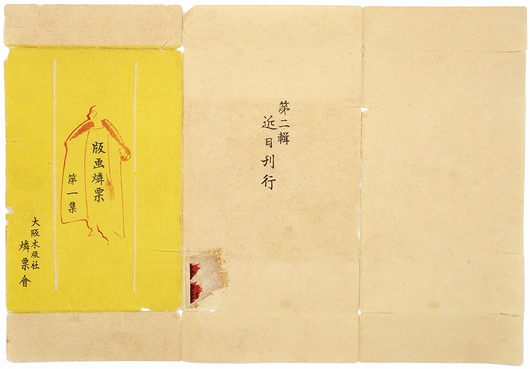 版画燐票
第一集
大阪木版社
燐票會
第二輯
近日刊行